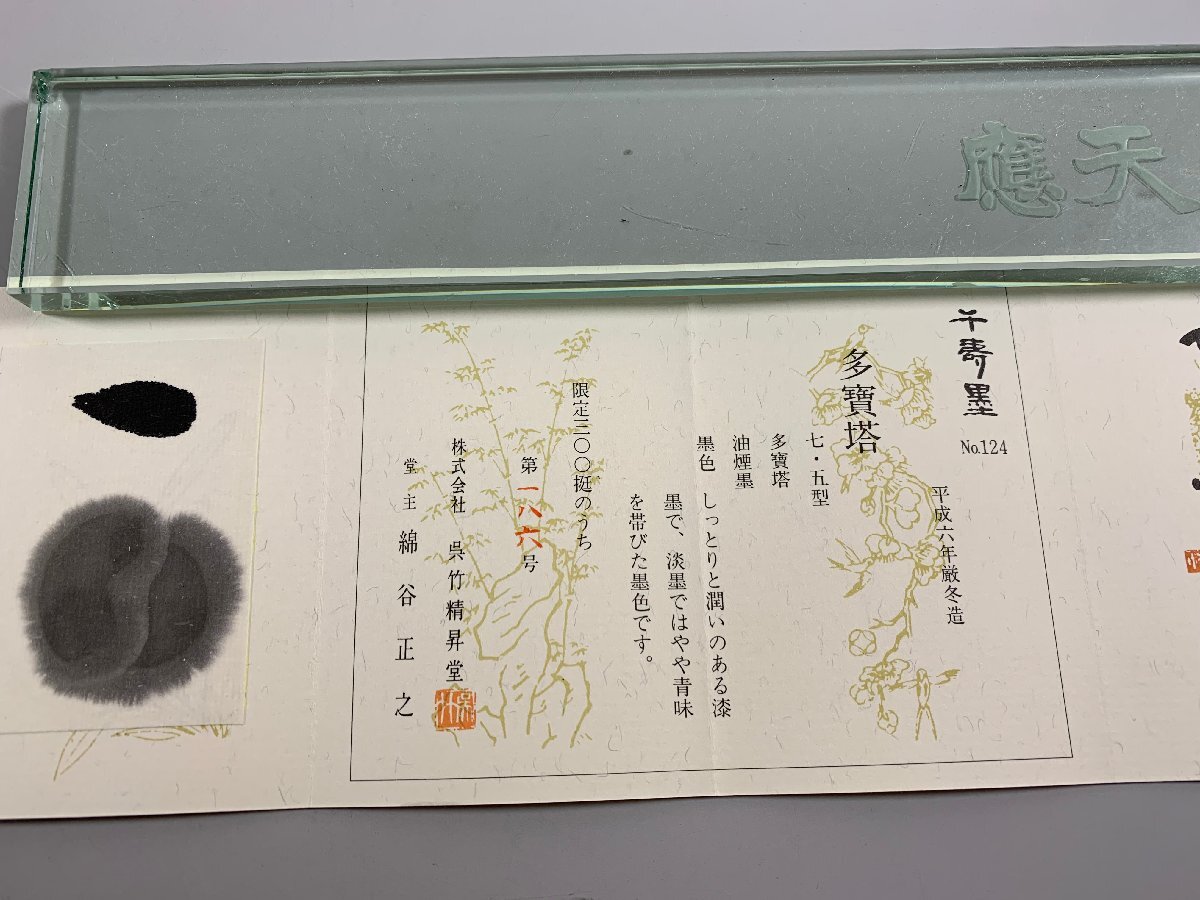 應天
千壽墨
No.124
平成六年厳冬造
多寶塔
七・五型
多寶塔
油煙墨
墨色 しっとりと潤いのある漆
墨で、淡墨ではやや青味
を帯びた墨色です。
限定三〇〇挺のうち
第一八六号
株式会社 呉竹精昇堂
堂主 綿谷正之